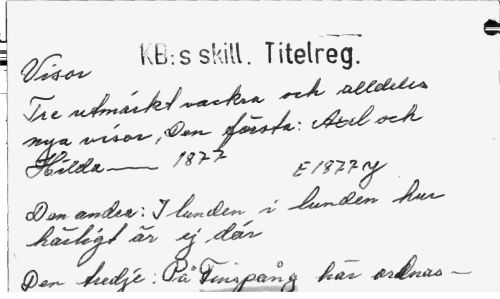 KB:s skill. Titelreg.
Visor
Tre utmärkt vackra och alldeles
nya visor, Den första: Axel och
Hilda — 1877 E1877y
Den andra: I lunden i lunden hur
härligt är ej där
Den tredje: På Finspång här ordnas—